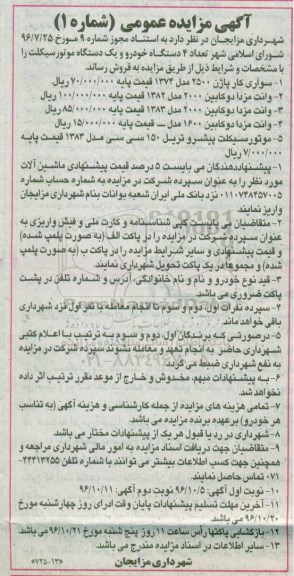 آگهی مزایده عمومی (شماره ۱)
شهرداری مزایجان در نظر دارد به استناد مجوز شماره ۹ مورخ ۹۶/۷/۲۵
شورای اسلامی شهر تعداد ۴ دستگاه خودرو و یک دستگاه موتورسیکلت را
با مشخصات و شرایط ذیل از طریق مزایده به فروش رساند.
۱- سواری کار پاژن ۲۵۰۰ مدل ۱۳۷۳ قیمت پایه ۷۰/۰۰۰/۰۰۰ ریال
۲- وانت مزدا دوکابین ۲۰۰۰ مدل ۱۳۸۲ قیمت پایه ۱۰۰/۰۰۰/۰۰۰ ریال
۳- وانت مزدا دوکابین ۲۰۰۰ مدل ۱۳۸۳ قیمت پایه ۸۵/۰۰۰/۰۰۰ ریال
۴- وانت مزدا دوکابین ۱۶۰۰ مدل ... قیمت پایه ۱۵/۰۰۰/۰۰۰ ریال
۵- موتورسیکلت پیشرو تریل ۱۵۰ سی سی مدل ۱۳۸۳ قیمت پایه
۷/۰۰۰/۰۰۰ ریال
۱- پیشنهاددهندگان می بایست ۵ درصد قیمت پیشنهادی ماشین آلات
مورد نظر را به عنوان سپرده شرکت در مزایده به شماره حساب شماره
۰۱۱۰۷۴۸۴۵۷۰۰۵ نزد بانک ملی ایران شعبه بوانات بنام شهرداری مزایجان
واریز نمایند.
۲- متقاضیان می بایست کپی شناسنامه و کارت ملی و فیش واریزی به
عنوان سپرده شرکت در مزایده را در پاکت الف (به صورت پلمپ شده)
و قیمت پیشنهادی و سایر شرایط مزایده را در پاکت ب (به صورت پلمپ
شده) و مجموعا در یک پاکت تحویل شهرداری نمایند.
۳- قید نوع خودرو و نام و نام خانوادگی، آدرس و شماره تلفن در پشت
پاکت ضروری می باشد.
۴- سپرده نفرات اول، دوم و سوم تا انجام معامله با نفر اول نزد شهرداری
باقی خواهد ماند.
۵- درصورتی که برندگان اول، دوم و سوم به ترتیب با اعلام کتبی
شهرداری حاضر به انجام تعهد و معامله نشوند سپرده شرکت در مزایده
به نفع شهرداری ضبط می گردد.
۶- به پیشنهادات مبهم، مخدوش و خارج از موعد مقرر ترتیب اثر داده
نخواهد شد.
۷- تمامی هزینه های مزایده از جمله کارشناسی و هزینه آگهی (به تناسب
هر خودرو) برعهده برنده مزایده می باشد.
۸- شهرداری در رد یا قبول هر یک از پیشنهادات مختار می باشد.
۹- متقاضیان جهت دریافت اسناد مزایده به امور مالی شهرداری مراجعه و
همچنین جهت کسب اطلاعات بیشتر می توانند با شماره تلفن ۴۴۴۱۳۲۵۵-
۰۷۱ تماس حاصل نمایند.
۱۰- نوبت اول آگهی: ۹۶/۱۰/۵ نوبت دوم آگهی: ۹۶/۱۰/۱۱
۱۱- آخرین مهلت تسلیم پیشنهادات پایان وقت ادرای روز چهارشنبه مورخ
۹۶/۱۰/۲۰ می باشد.
۱۲- بازگشایی پاکتها رأس ساعت ۱۱ روز پنج شنبه مورخ ۹۶/۱۰/۲۱ می باشد.
۱۳- سایر اطلاعات در اسناد مزایده مندرج می باشد.
شهرداری مزایجان